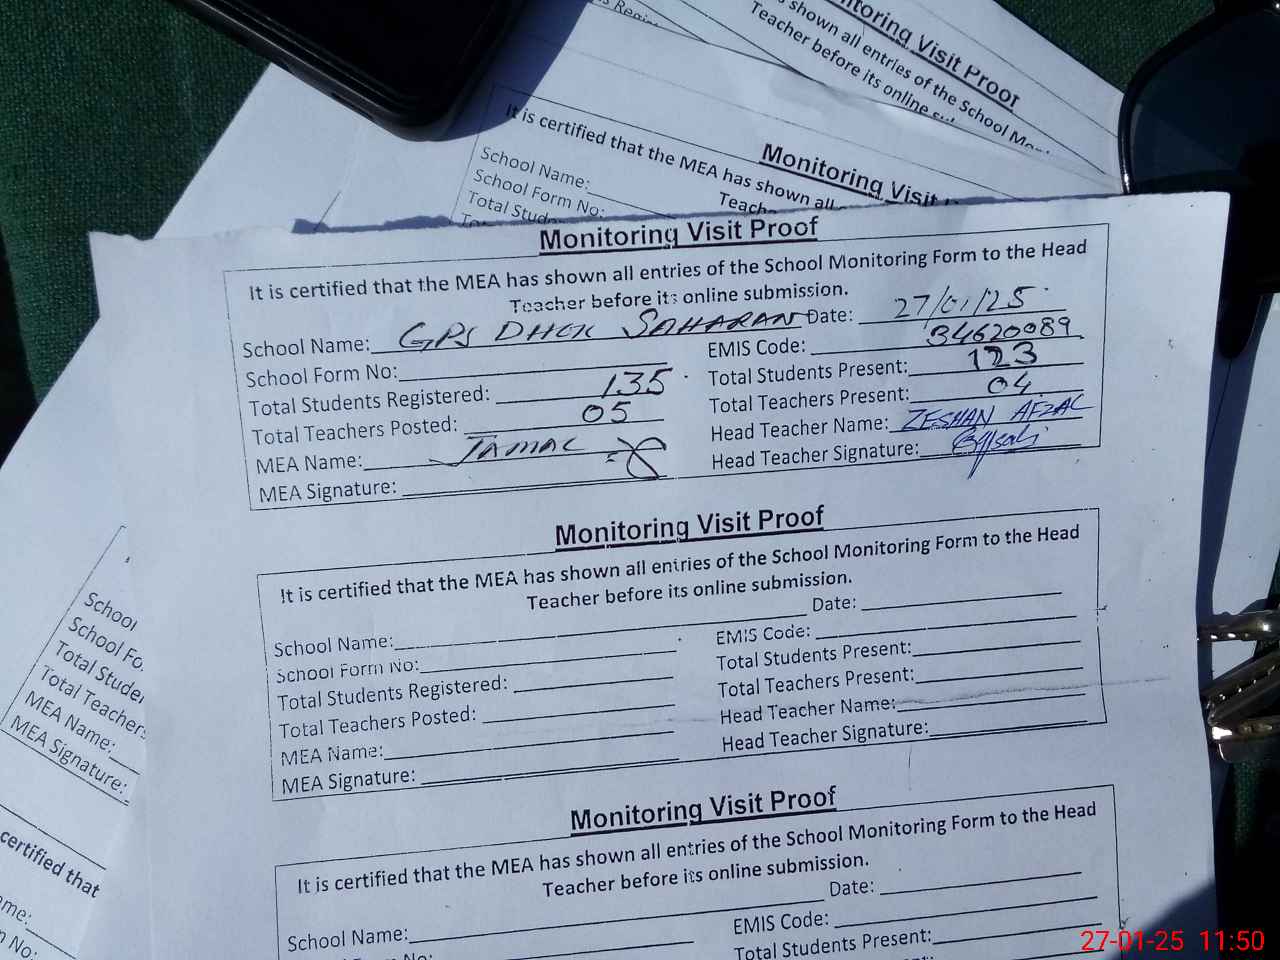 s Regis
Monitoring Visit Proof
s shown all entries of the School Mon
Teacher before its online su
Monitoring Visit
It is certified that the MEA has shown all
Teach
School Name:
School Form No:
Total Stude
Monitoring Visit Proof
It is certified that the MEA has shown all entries of the School Monitoring Form to the Head
Teacher before its online submission.
School Name: GPS DHOK SAHARAN Date: 27/01/25
School Form No: EMIS Code: 34620089
Total Students Registered: 135 Total Students Present: 123
Total Teachers Posted: 05 Total Teachers Present: 04
MEA Name: JAMAL Head Teacher Name: ZESHAN AFZAL
MEA Signature: Head Teacher Signature:
Monitoring Visit Proof
It is certified that the MEA has shown all entries of the School Monitoring Form to the Head
Teacher before its online submission.
School Name: Date:
School Form No: EMIS Code:
Total Students Registered: Total Students Present:
Total Teachers Posted: Total Teachers Present:
MEA Name: Head Teacher Name:
MEA Signature: Head Teacher Signature:
Monitoring Visit Proof
It is certified that the MEA has shown all entries of the School Monitoring Form to the Head
Teacher before its online submission.
School Name: Date:
EMIS Code:
Total Students Present:
School
School Fo
Total Studen
Total Teachers
MEA Name:
MEA Signature:
certified that
ame:
No:
27-01-25 11:50